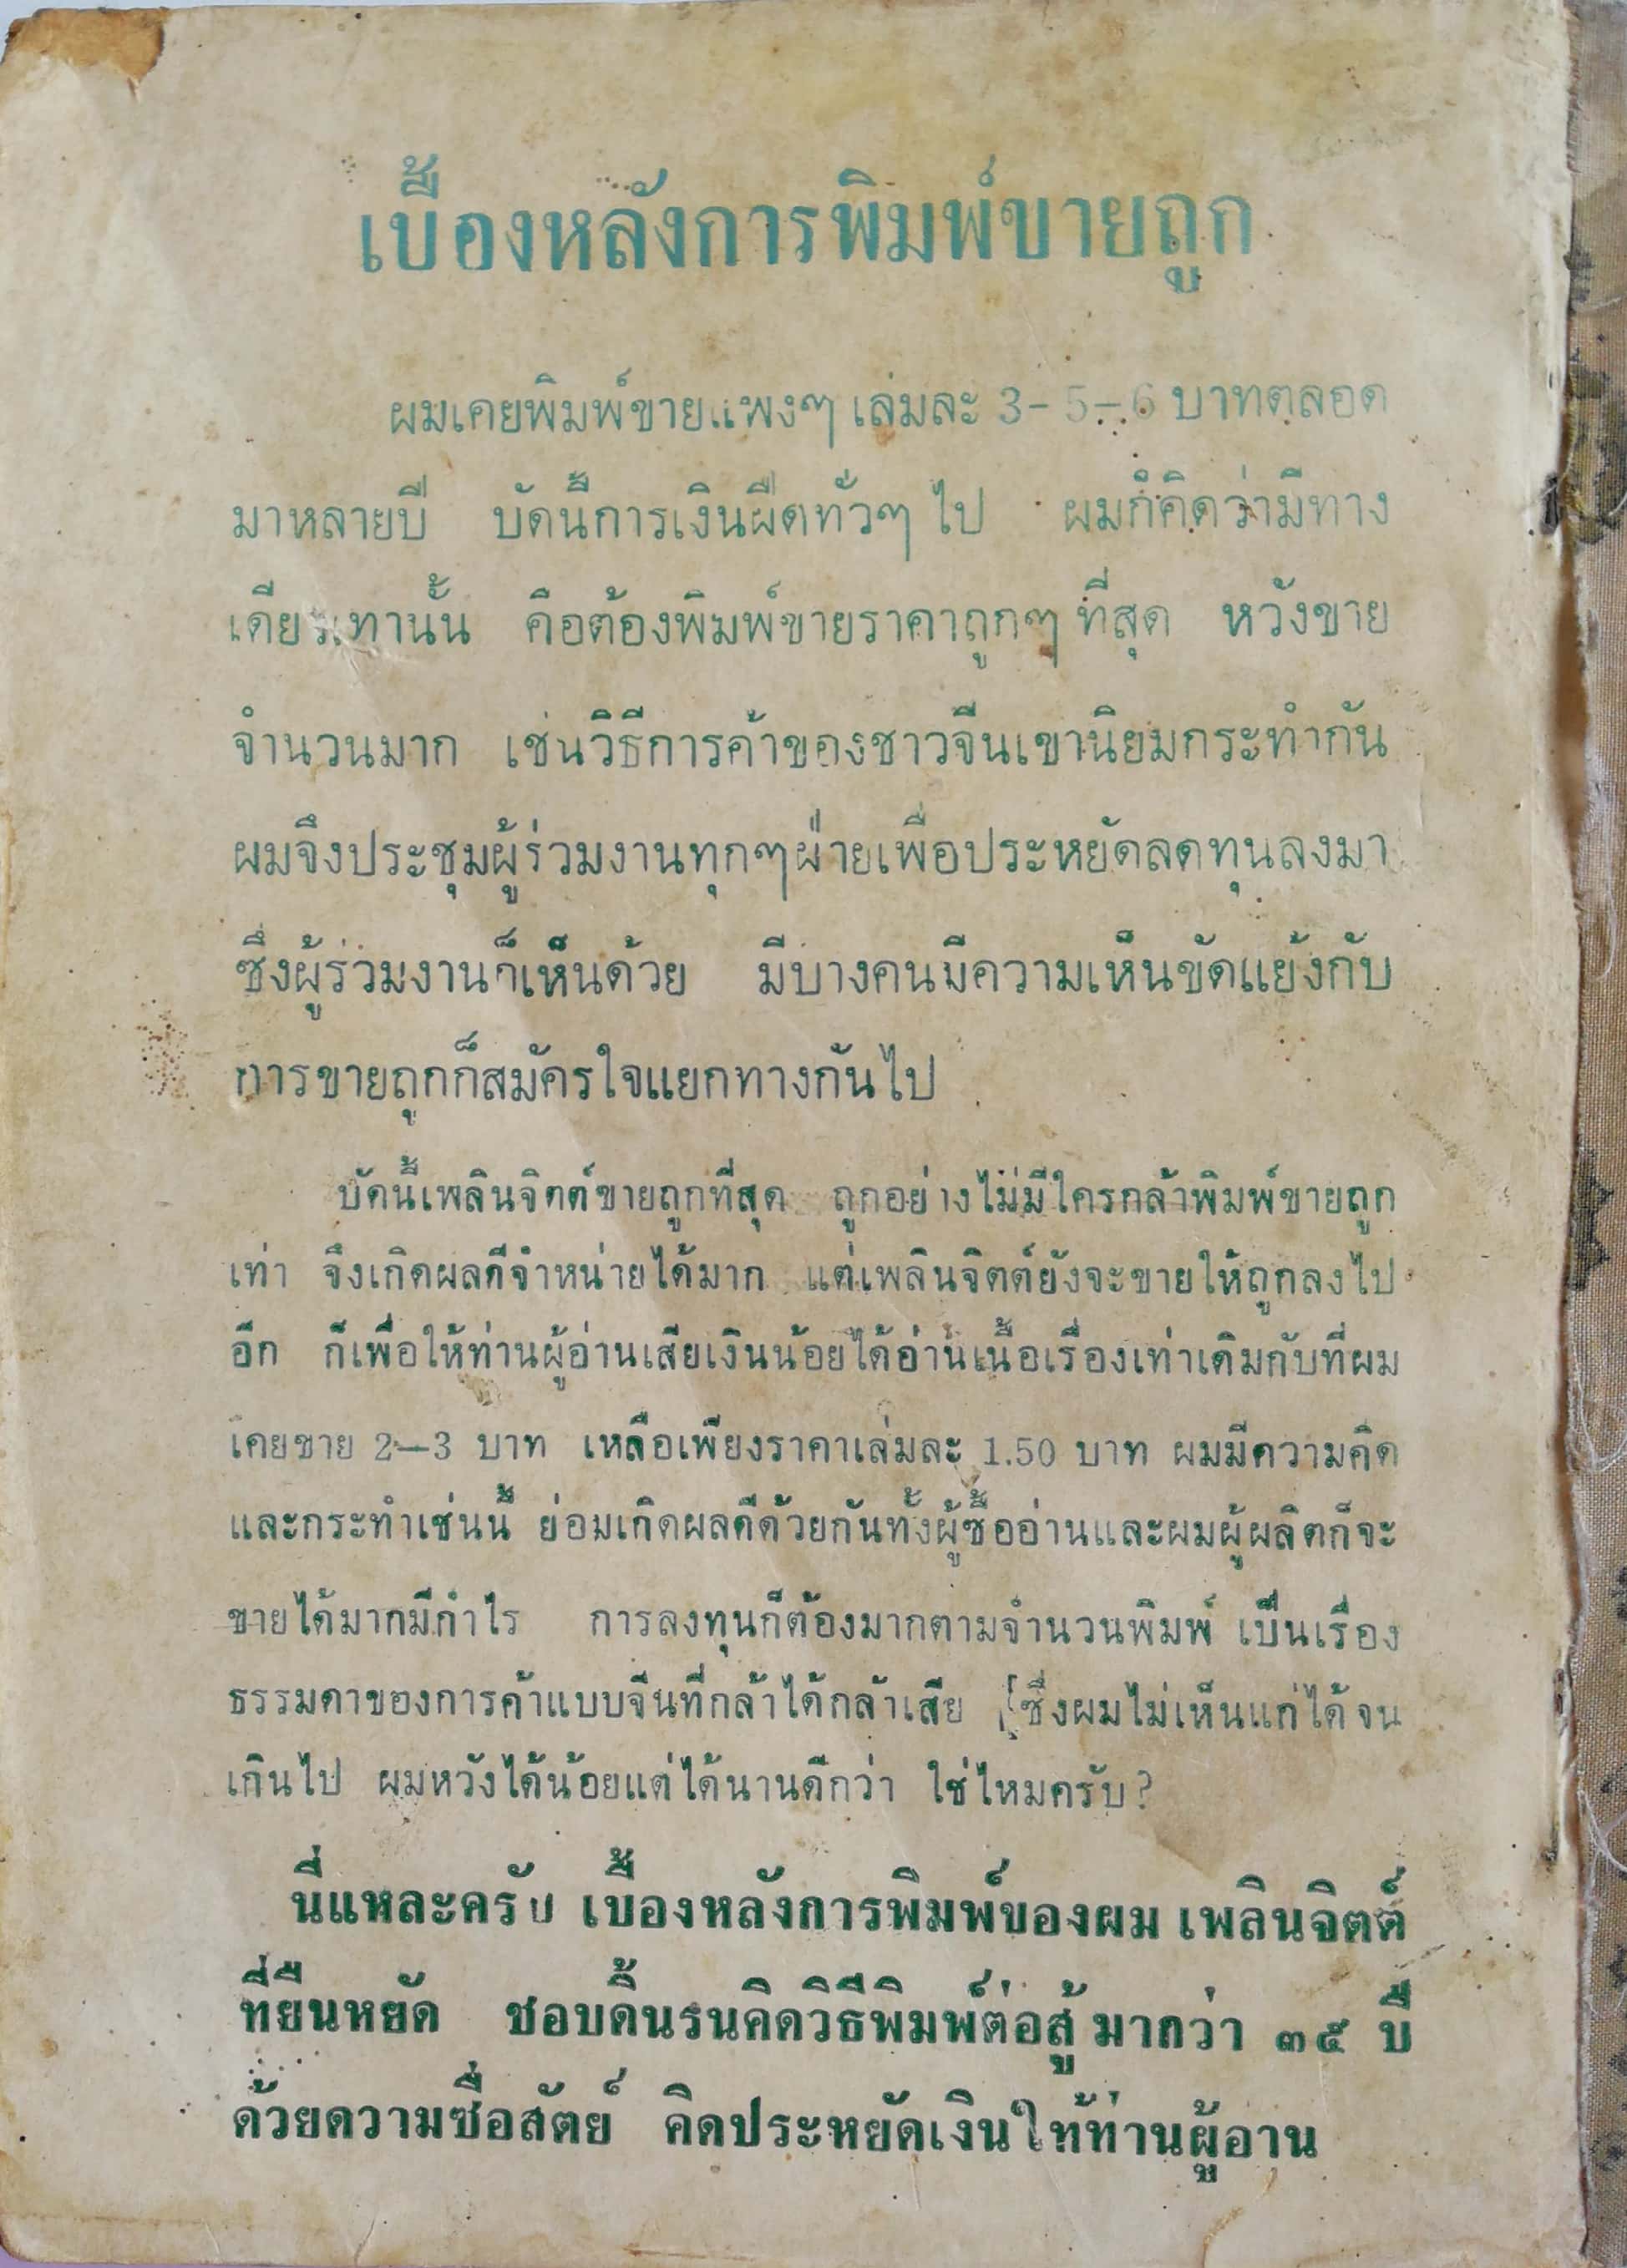 เบื้องหลังการพิมพ์ขายถูก
ผมเคยพิมพ์ขายแพงๆ เล่มละ 3-5-6 บาทตลอด
มาหลายปี บัดนี้การเงินฝืดทั่วๆ ไป ผมก็คิดว่ามีทาง
เดียวเทานั้น คือต้องพิมพ์ขายราคาถูกๆ ที่สุด หวังขาย
จำนวนมาก เช่นวิธีการค้าของชาวจีนเขานิยมกระทำกัน
ผมจึงประชุมผู้ร่วมงานทุกๆฝ่ายเพื่อประหยัดลดทุนลงมา
ซึ่งผู้ร่วมงานก็เห็นด้วย มีบางคนมีความเห็นขัดแย้งกับ
การขายถูกก็สมัครใจแยกทางกันไป
บัดนี้เพลินจิตต์ขายถูกที่สุด ถูกอย่างไม่มีใครกล้าพิมพ์ขายถูก
เท่า จึงเกิดผลดีจำหน่ายได้มาก แต่เพลินจิตต์ยังจะขายให้ถูกลงไป
อีก ก็เพื่อให้ท่านผู้อ่านเสียเงินน้อยได้อ่านเนื้อเรื่องเท่าเดิมกับที่ผม
เคยขาย 2—3 บาท เหลือเพียงราคาเล่มละ 1.50 บาท ผมมีความคิด
และกระทำเช่นนี้ ย่อมเกิดผลดีด้วยกันทั้งผู้ซื้ออ่านและผมผู้ผลิตก็จะ
ขายได้มากมีกำไร การลงทุนก็ต้องมากตามจำนวนพิมพ์ เป็นเรื่อง
ธรรมดาของการค้าแบบจีนที่กล้าได้กล้าเสีย ซึ่งผมไม่เห็นแก่ได้จน
เกินไป ผมหวังได้น้อยแต่ได้นานดีกว่า ใช่ไหมครับ?
นี่แหละครับ เบื้องหลังการพิมพ์ของผม เพลินจิตต์
ที่ยืนหยัด ชอบดิ้นรนคิดวิธีพิมพ์ต่อสู้ มากว่า ๓๕ ปี
ด้วยความซื่อสัตย์ คิดประหยัดเงินให้ท่านผู้อาน